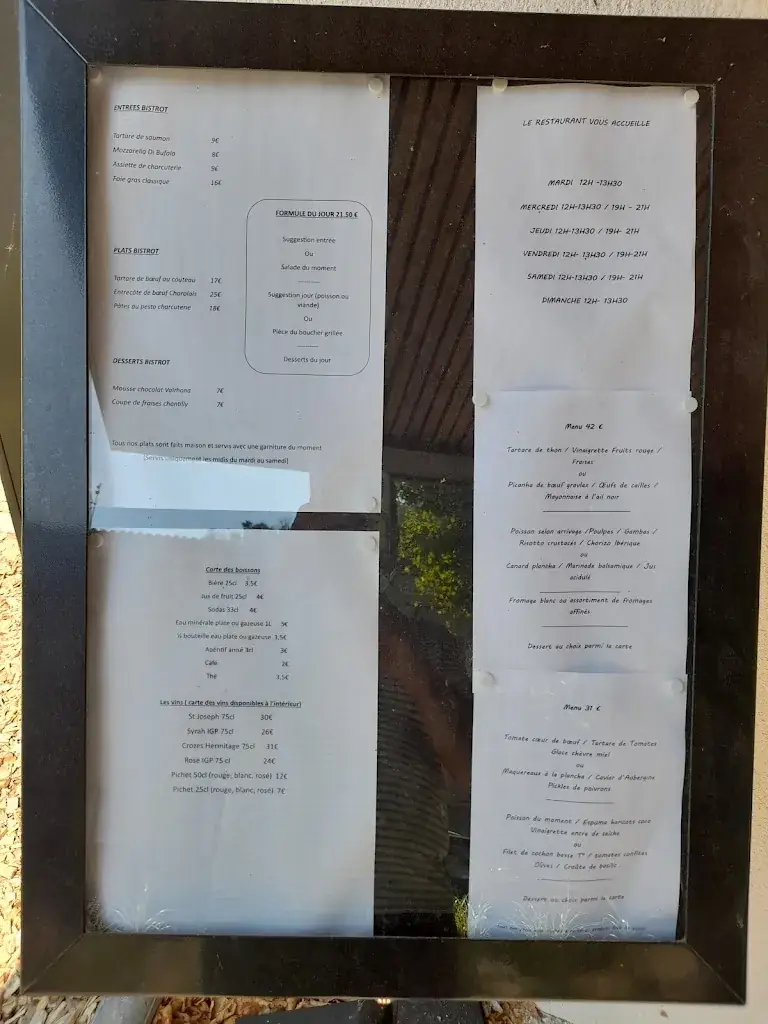 ENTREES BISTROT
Tartare de saumon 9€
Mozzarella Di Bufala 8€
Assiette de charcuterie 9€
Foie gras classique 16€
FORMULE DU JOUR 21.50 €
Suggestion entrée
Ou
Salade du moment
Suggestion jour (poisson ou
viande)
Ou
Pièce du boucher grillée
Desserts du jour
PLATS BISTROT
Tartare de bœuf au couteau 17€
Entrecôte de bœuf Charolais 25€
Pâtes au pesto charcuterie 18€
DESSERTS BISTROT
Mousse chocolat Valrhona 7€
Coupe de fraises chantilly 7€
Tous nos plats sont faits maison et servis avec une garniture du moment
(Servis uniquement les midis du mardi au samedi)
Carte des boissons
Bière 25cl 3,5€
Jus de fruit 25cl 4€
Sodas 33cl 4€
Eau minérale plate ou gazeuse 1L 5€
½ bouteille eau plate ou gazeuse 3,5€
Apéritif anisé 3cl 3€
Café 2€
Thé 3,5€
Les vins ( carte des vins disponibles à l'intérieur)
St Joseph 75cl 30€
Syrah IGP 75cl 26€
Crozes Hermitage 75cl 31€
Rosé IGP 75 cl 24€
Pichet 50cl (rouge, blanc, rosé) 12€
Pichet 25cl (rouge, blanc, rosé) 7€
LE RESTAURANT VOUS ACCUEILLE
MARDI 12H -13H30
MERCREDI 12H-13H30 / 19H - 21H
JEUDI 12H-13H30 / 19H- 21H
VENDREDI 12H- 13H30 / 19H-21H
SAMEDI 12H-13H30 / 19H- 21H
DIMANCHE 12H- 13H30
Menu 42 €
Tartare de thon / Vinaigrette Fruits rouge /
Fraises
ou
Picanha de bœuf gravlax / Œufs de cailles /
Mayonnaise à l'ail noir
Poisson selon arrivage /Poulpes / Gambas /
Risotto crustacés / Chorizo Ibérique
ou
Canard plancha / Marinade balsamique / Jus
acidulé
Fromage blanc ou assortiment de fromages
affinés
Dessert au choix parmi la carte
Menu 31 €
Tomate cœur de bœuf / Tartare de Tomates
Glace chèvre miel
ou
Maquereaux à la plancha / Caviar d'Aubergine
Pickles de poivrons
Poisson du moment / Espuma haricots coco
Vinaigrette encre de seiche
ou
Filet de cochon basse T° / tomates confites
Olives / Croûte de
Dessert au choix parmi la carte